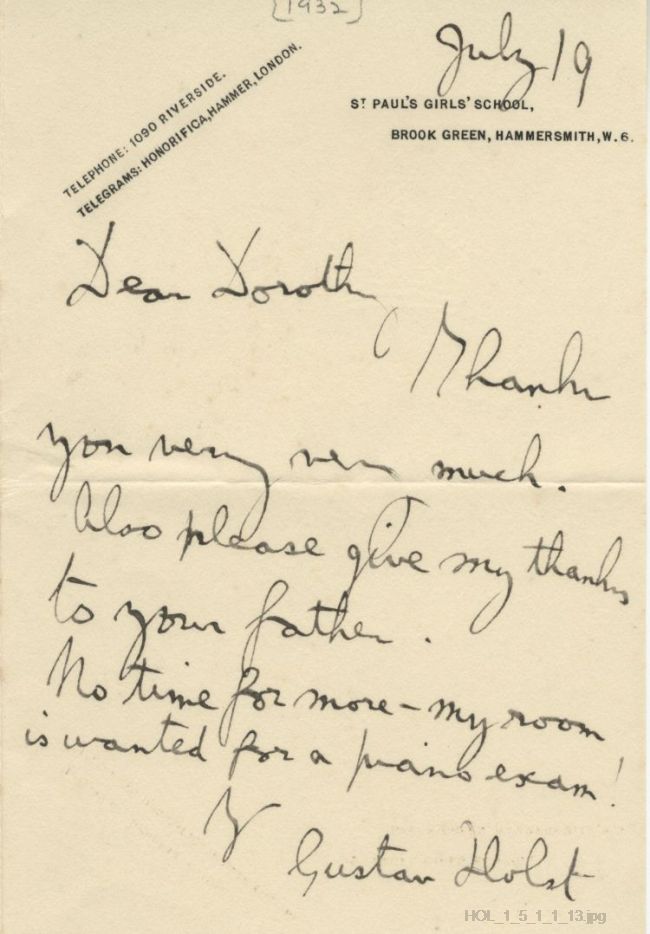 [1932]
July 19
TELEPHONE: 1090 RIVERSIDE.
TELEGRAMS: HONORIFICA, HAMMER, LONDON.
ST PAUL'S GIRLS' SCHOOL,
BROOK GREEN, HAMMERSMITH, W. 6.
Dear Dorothy
Thanks
you very very much.
Also please give my thanks
to your father.
No time for more - my room
is wanted for a piano exam!
Yr
Gustav Holst
HOL_1_5_1_1_13.jpg